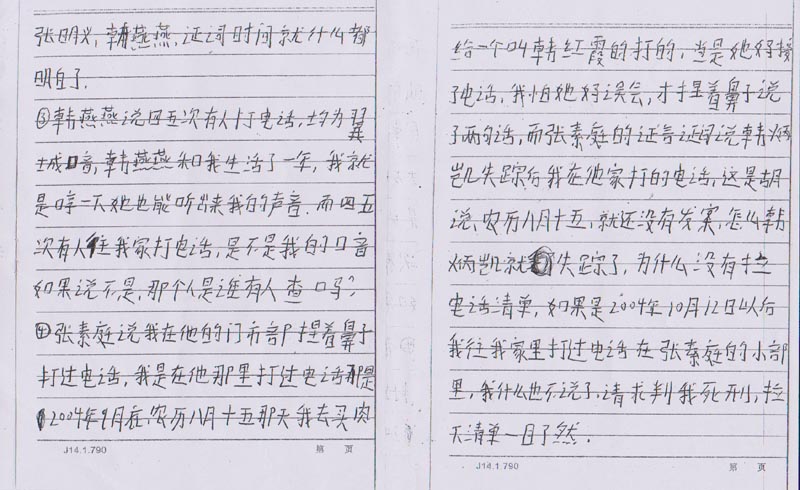 张明义，韩燕燕，证词时间就什么都
明白了.
③韩燕燕说四五次有人打电话，均为翼
城口音，韩燕燕和我生活了一年，我就
是哼一天她也能听出来我的声音.而四五
次有人往我家打电话，是不是我的口音
如果说不是，那个人是谁有人查口吗？
④张素庭说我在他的门市部捏着鼻子
打过电话，我是在他那里打过电话那是
2004年9月在，农历八月十五那天我去买肉
J14.1.790 第 页
给一个叫韩红霞的打的，当是她假接
了电话，我怕她好误会，才捏着鼻子说
了两句话，而张素庭的证言证词说韩炳
凯失踪后我在他家打的电话，这是胡
说，农历八月十五，就还没有发案，怎么韩
炳凯就失踪了，为什么没有拉
电话清单，如果是2004年10月12日以后
我往我家里打过电话在张素庭的小部
里，我什么也不说了，请求判我死刑，拉
天清单一目了然.
J14.1.790 第 页